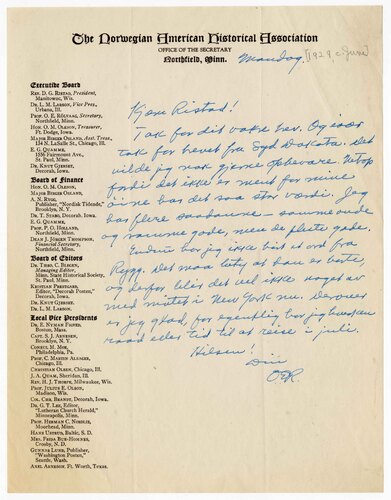 The Norwegian American Historical Association
OFFICE OF THE SECRETARY
Northfield, Minn.
Monday,
[1929, c. June]
Executive Board
REV. D. G. RISTAD, President,
Manitowoc, Wis.
DR. L. M. LARSON, Vice Pres.,
Urbana, Ill.
PROF. O. E. RÖLVAAG, Secretary,
Northfield, Minn.
HON. O. M. OLESON, Treasurer,
Ft. Dodge, Iowa.
MAJOR BIRGER OSLAND, Asst. Treas.,
134 N. LaSalle St., Chicago, Ill.
E. G. QUAMME,
1596 Fairmount Ave.,
St. Paul, Minn.
DR. KNUT GJERSET,
Decorah, Iowa.
Board of Finance
HON. O. M. OLESON,
MAJOR BIRGER OSLAND,
A. N. RYGG,
Publisher, "Nordisk Tidende,"
Brooklyn, N. Y.
DR. T. STABO, Decorah, Iowa.
E. G. QUAMME,
PROF. P. O. HOLLAND,
Northfield, Minn.
DEAN J. JÖRGEN THOMPSON,
Financial Secretary,
Northfield, Minn.
Board of Editors
DR. THEO. C. BLEGEN,
Managing Editor,
Minn. State Historical Society,
St. Paul, Minn.
KRISTIAN PRESTGARD,
Editor, "Decorah Posten,"
Decorah, Iowa.
DR. KNUT GJERSET,
DR. L. M. LARSON.
Local Vice Presidents
DR. E. NYMAN FIGVED,
Boston, Mass.
CAPT. S. J. ARNESEN,
Brooklyn, N. Y.
CONSUL M. MOE,
Philadelphia, Pa.
PROF. C. MARTIN ALSAGER,
Chicago, Ill.
CHRISTIAN OLSEN, Chicago, Ill.
J. A. QUAM, Sheridan, Ill.
REV. H. J. THORPE, Milwaukee, Wis.
PROF. JULIUS E. OLSON,
Madison, Wis.
COL. CHR. BRANDT, Decorah, Iowa.
DR. G. T. LEE, Editor,
"Lutheran Church Herald,"
Minneapolis, Minn.
PROF. HERMAN C. NORDLIE,
Moorhead, Minn.
HANS USTRUD, Baltic, S. D.
MRS. FRIDA BUE-HOMNES,
Crosby, N. D.
GUNNAR LUND, Publisher,
"Washington Posten,"
Seattle, Wash.
AXEL ARNESON, Ft. Worth, Texas.
Kjære Ristad!
Tak for dit vakre brev. Og saa
tak for brevet fra Syd Dakota. Det
vilde jeg nok gjerne opbevare. Netop
fordi det ikke er ment for mine
øine har det saa stor værdi. Jeg
har flere saadanne – somme onde
og somme gode, men de fleste gode.
Endnu har jeg ikke hørt et ord fra
Rygg. Det maa tyde at han er borte,
og derfor blir det vel ikke noget av
med møtet i New York nu. Derover
er jeg glad, for egentlig har jeg hverken
raad eller tid til at reise i juli.
Hilsen!
Din
OER.